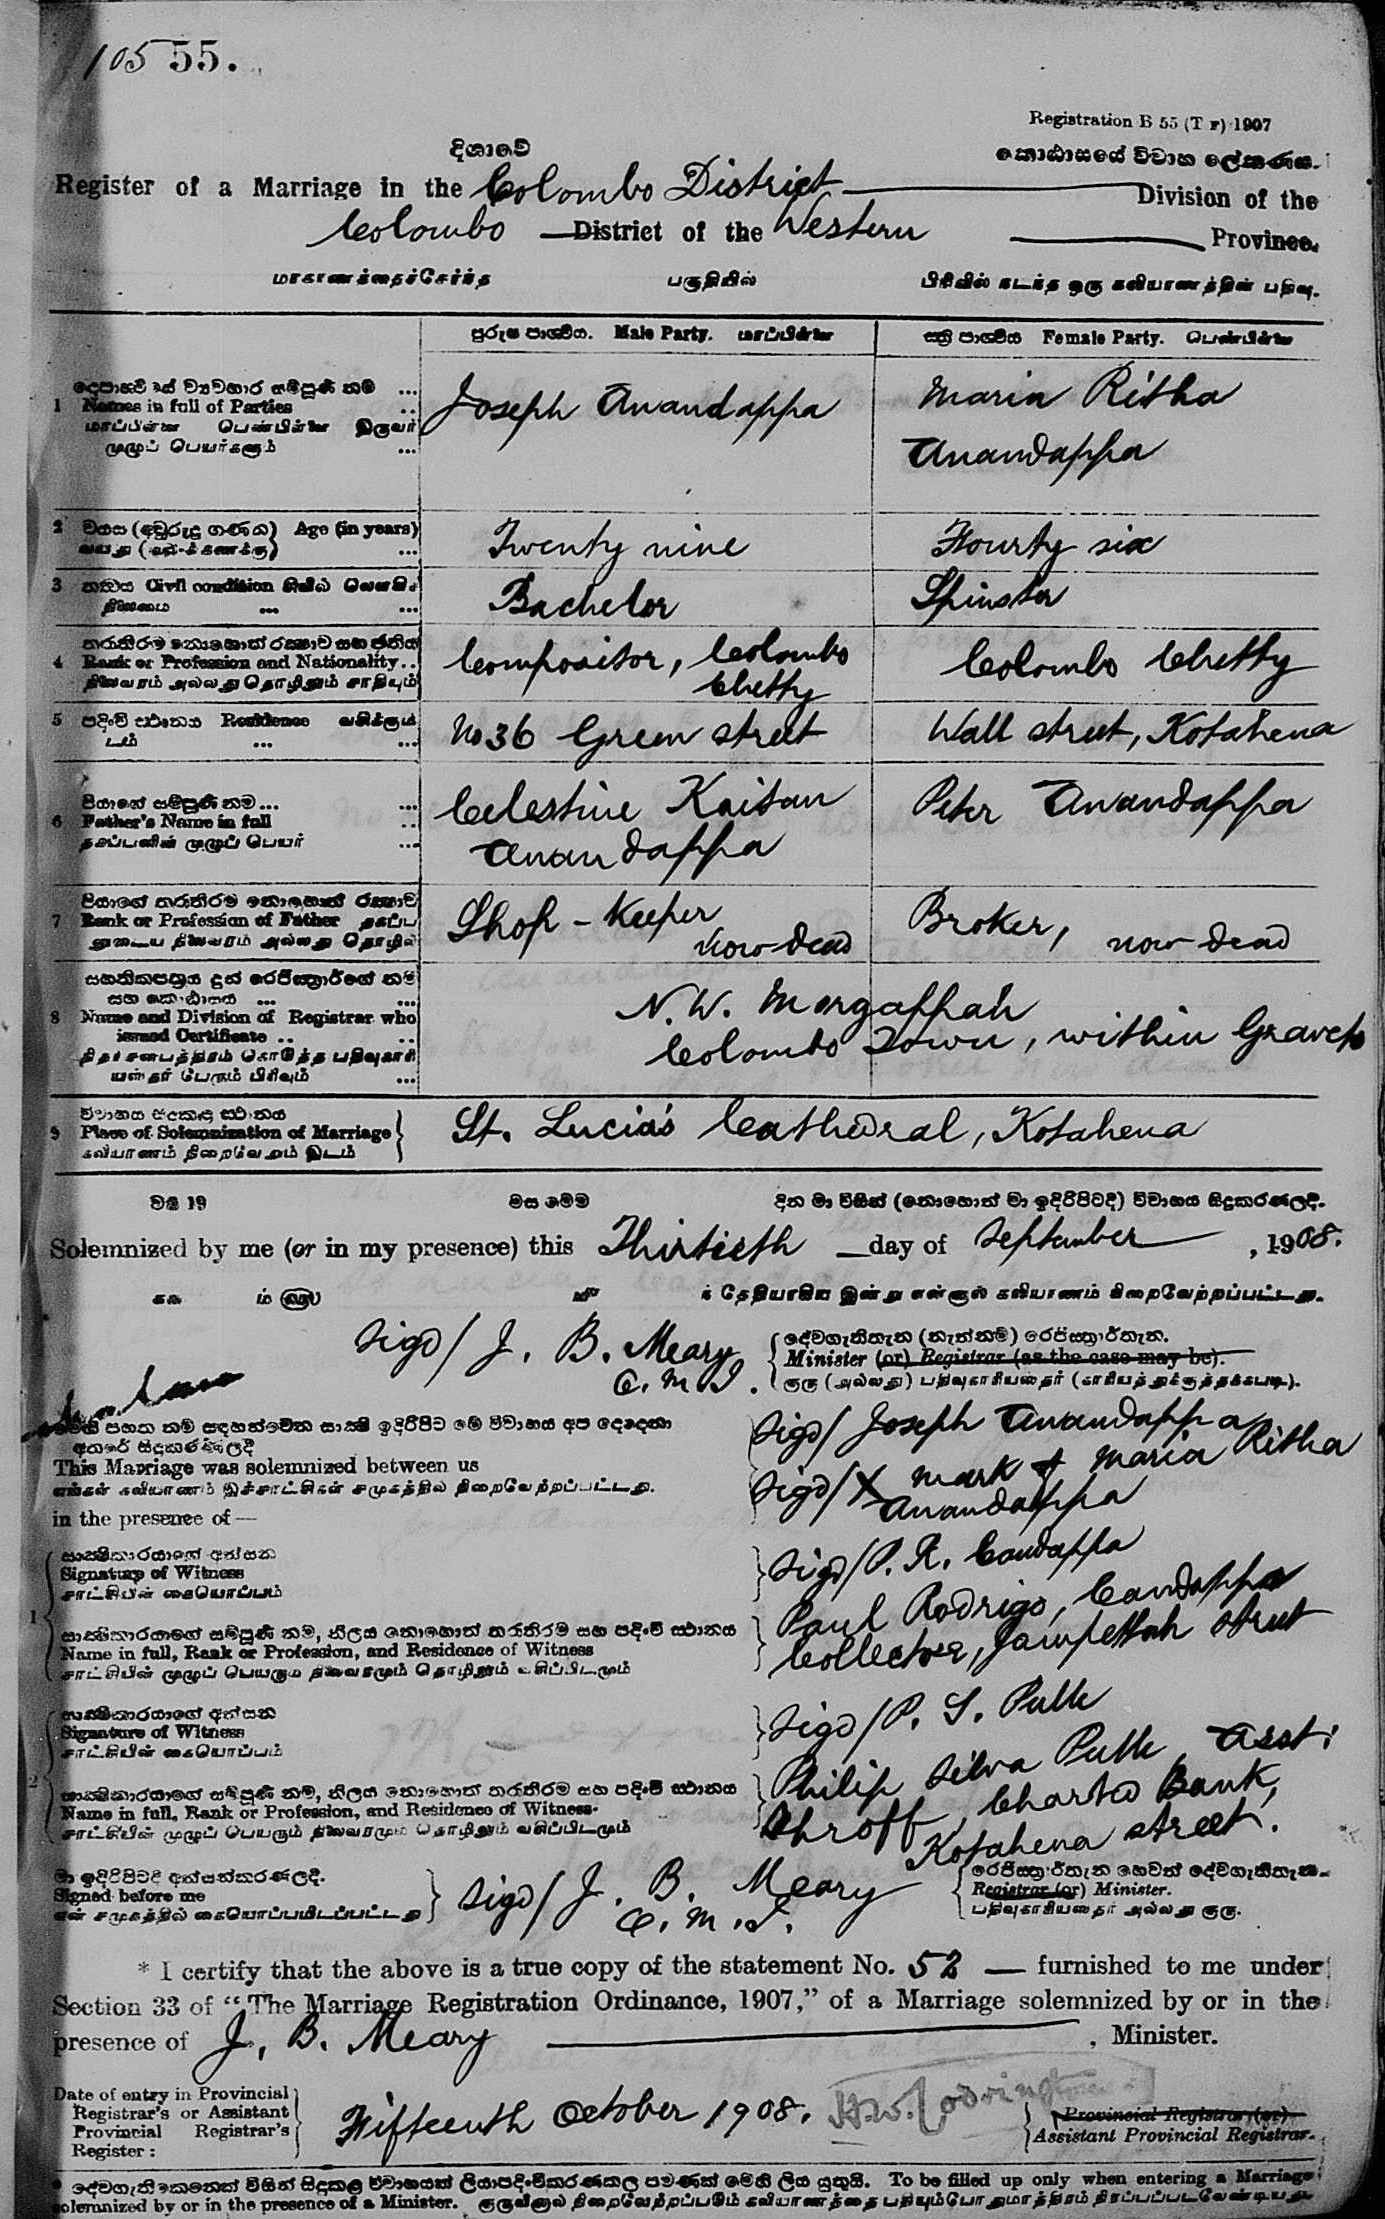 105 55.
Registration B 55 (T F) 1907
දිශාවේ
කොඨාසයේ විවාහ ලේකණය.
Register of a Marriage in the Colombo District Division of the
Colombo District of the Western Province.
மாகாணத்தைச்சேர்ந்த பகுதியில் பிரிவில் நடந்த ஒரு கலியாணத்தின் பதிவு.
පුරුෂ පාර්ශ්වය. Male Party. மாப்பிள்ளை
ස්ත්‍රී පාර්ශ්වය Female Party. பெண்பிள்ளை
සම්පූර්ණ නම ...
1 Names in full of Parties
மாப்பிள்ளை பெண்பிள்ளை இருவர்
முழுப் பெயர்களும் ...
Joseph Anandappa
Maria Ritha
Anandappa
2 වයස (අවුරුදු ගණන) Age (in years)
வயது
Twenty nine
Fourty six
3 Civil condition
Bachelor
Spinster
4 Rank or Profession and Nationality..
நிலைவரம் அல்லது தொழிலும் சாதியும்
Compositor, Colombo
Chetty
Colombo Chetty
5 පදිංචි ස්ථානය Residence
No 36 Green street
Wall street, Kotahena
පියාගේ සම්පූර්ණ නම ...
6 Father's Name in full
தகப்பனின் முழுப் பெயர் ...
Celestine Kaitan
Anandappa
Peter Anandappa
7 Rank or Profession of Father
நிலைவரம் அல்லது தொழில்
Shop - Keeper
now dead
Broker, now dead
සහතිකපත්‍රය දුන් රෙජිස්ත්‍රාර්ගේ නම
සහ කොඨාසය ...
8 Name and Division of Registrar who
issued Certificate ..
பெயரும் பிரிவும் ...
N. W. Morgappah
Colombo Town, within Gravets
9 Place of Solemnization of Marriage
கலியாணம் நிறைவேறும் இடம்
St. Lucia's Cathedral, Kotahena
වර්ෂ 19 මස මෙම දින මා විසින් (නොහොත් මා ඉදිරිපිටදී) විවාහය සිදුකරණලදී.
Solemnized by me (or in my presence) this Thirtieth day of September, 1908.
தேதியாகிய இன்று என்னால் கலியாணம் நிறைவேற்றப்பட்டது.
Sigd/ J. B. Meary
O. M. I.
දේවගැතිතැන (නැත්නම්) රෙජිස්ත්‍රාර්තැන.
Minister (or) Registrar (as the case may be).
குரு (அல்லது) பதிவுகாரியஸ்தர் (காரியத்துக்குத்தக்கபடி).
මෙහි පහත නම් සඳහන්වෙන සාක්ෂි ඉදිරිපිට මේ විවාහය අප දෙදෙනා
අතරේ සිදුකරණලදී
This Marriage was solemnized between us
எங்கள் கலியாணம் இச்சாட்சிகள் சமுகத்தில் நிறைவேற்றப்பட்டது.
in the presence of—
Sigd/ Joseph Anandappa
Sigd/ X mark of Maria Ritha
Anandappa
සාක්ෂිකාරයාගේ අත්සන
Signature of Witness
சாட்சியின் கையொப்பம்
Sigd/ P. R. Candappa
1
සාක්ෂිකාරයාගේ සම්පූර්ණ නම, නිලය නොහොත් තරාතිරම සහ පදිංචි ස්ථානය
Name in full, Rank or Profession, and Residence of Witness
சாட்சியின் முழுப் பெயரும் நிலைவரமும் தொழிலும் வசிப்பிடமும்
Paul Rodrigo, Candappa
Collector, Jampettah Street
සාක්ෂිකාරයාගේ අත්සන
Signature of Witness
சாட்சியின் கையொப்பம்
Sigd/ P. S. Pulle
2
සාක්ෂිකාරයාගේ සම්පූර්ණ නම, නිලය නොහොත් තරාතිරම සහ පදිංචි ස්ථානය
Name in full, Rank or Profession, and Residence of Witness.
சாட்சியின் முழுப் பெயரும் நிலைவரமும் தொழிலும் வசிப்பிடமும்
Philip Silva Pulle, Asst:
Shroff, Charted Bank,
Kotahena street.
මා ඉදිරිපිටදී අත්සන්කරණලදී.
Signed before me
என் சமுகத்தில் கையொப்பமிடப்பட்டது
Sigd/ J. B. Meary
O. M. I.
රෙජිස්ත්‍රාර්තැන හෙවත් දේවගැතිතැන.
Registrar (or) Minister.
பதிவுகாரியஸ்தர் அல்லது குரு.
* I certify that the above is a true copy of the statement No. 52 — furnished to me under
Section 33 of “The Marriage Registration Ordinance, 1907,” of a Marriage solemnized by or in the
presence of J. B. Meary, Minister.
Date of entry in Provincial
Registrar's or Assistant
Provincial Registrar's
Register:
Fifteenth October 1908.
H. W. Codrington
Provincial Registrar, (or)
Assistant Provincial Registrar.
* දේවගැති කෙනෙක් විසින් සිදුකල විවාහයක් ලියාපදිංචිකරණකල පමණක් මෙහි ලිය යුතුයි. To be filled up only when entering a Marriage
solemnized by or in the presence of a Minister. குருவினால் நிறைவேற்றப்படும் கலியாணத்தை பதியும்போதுமாத்திரம் நிரப்பப்படவேண்டியது.